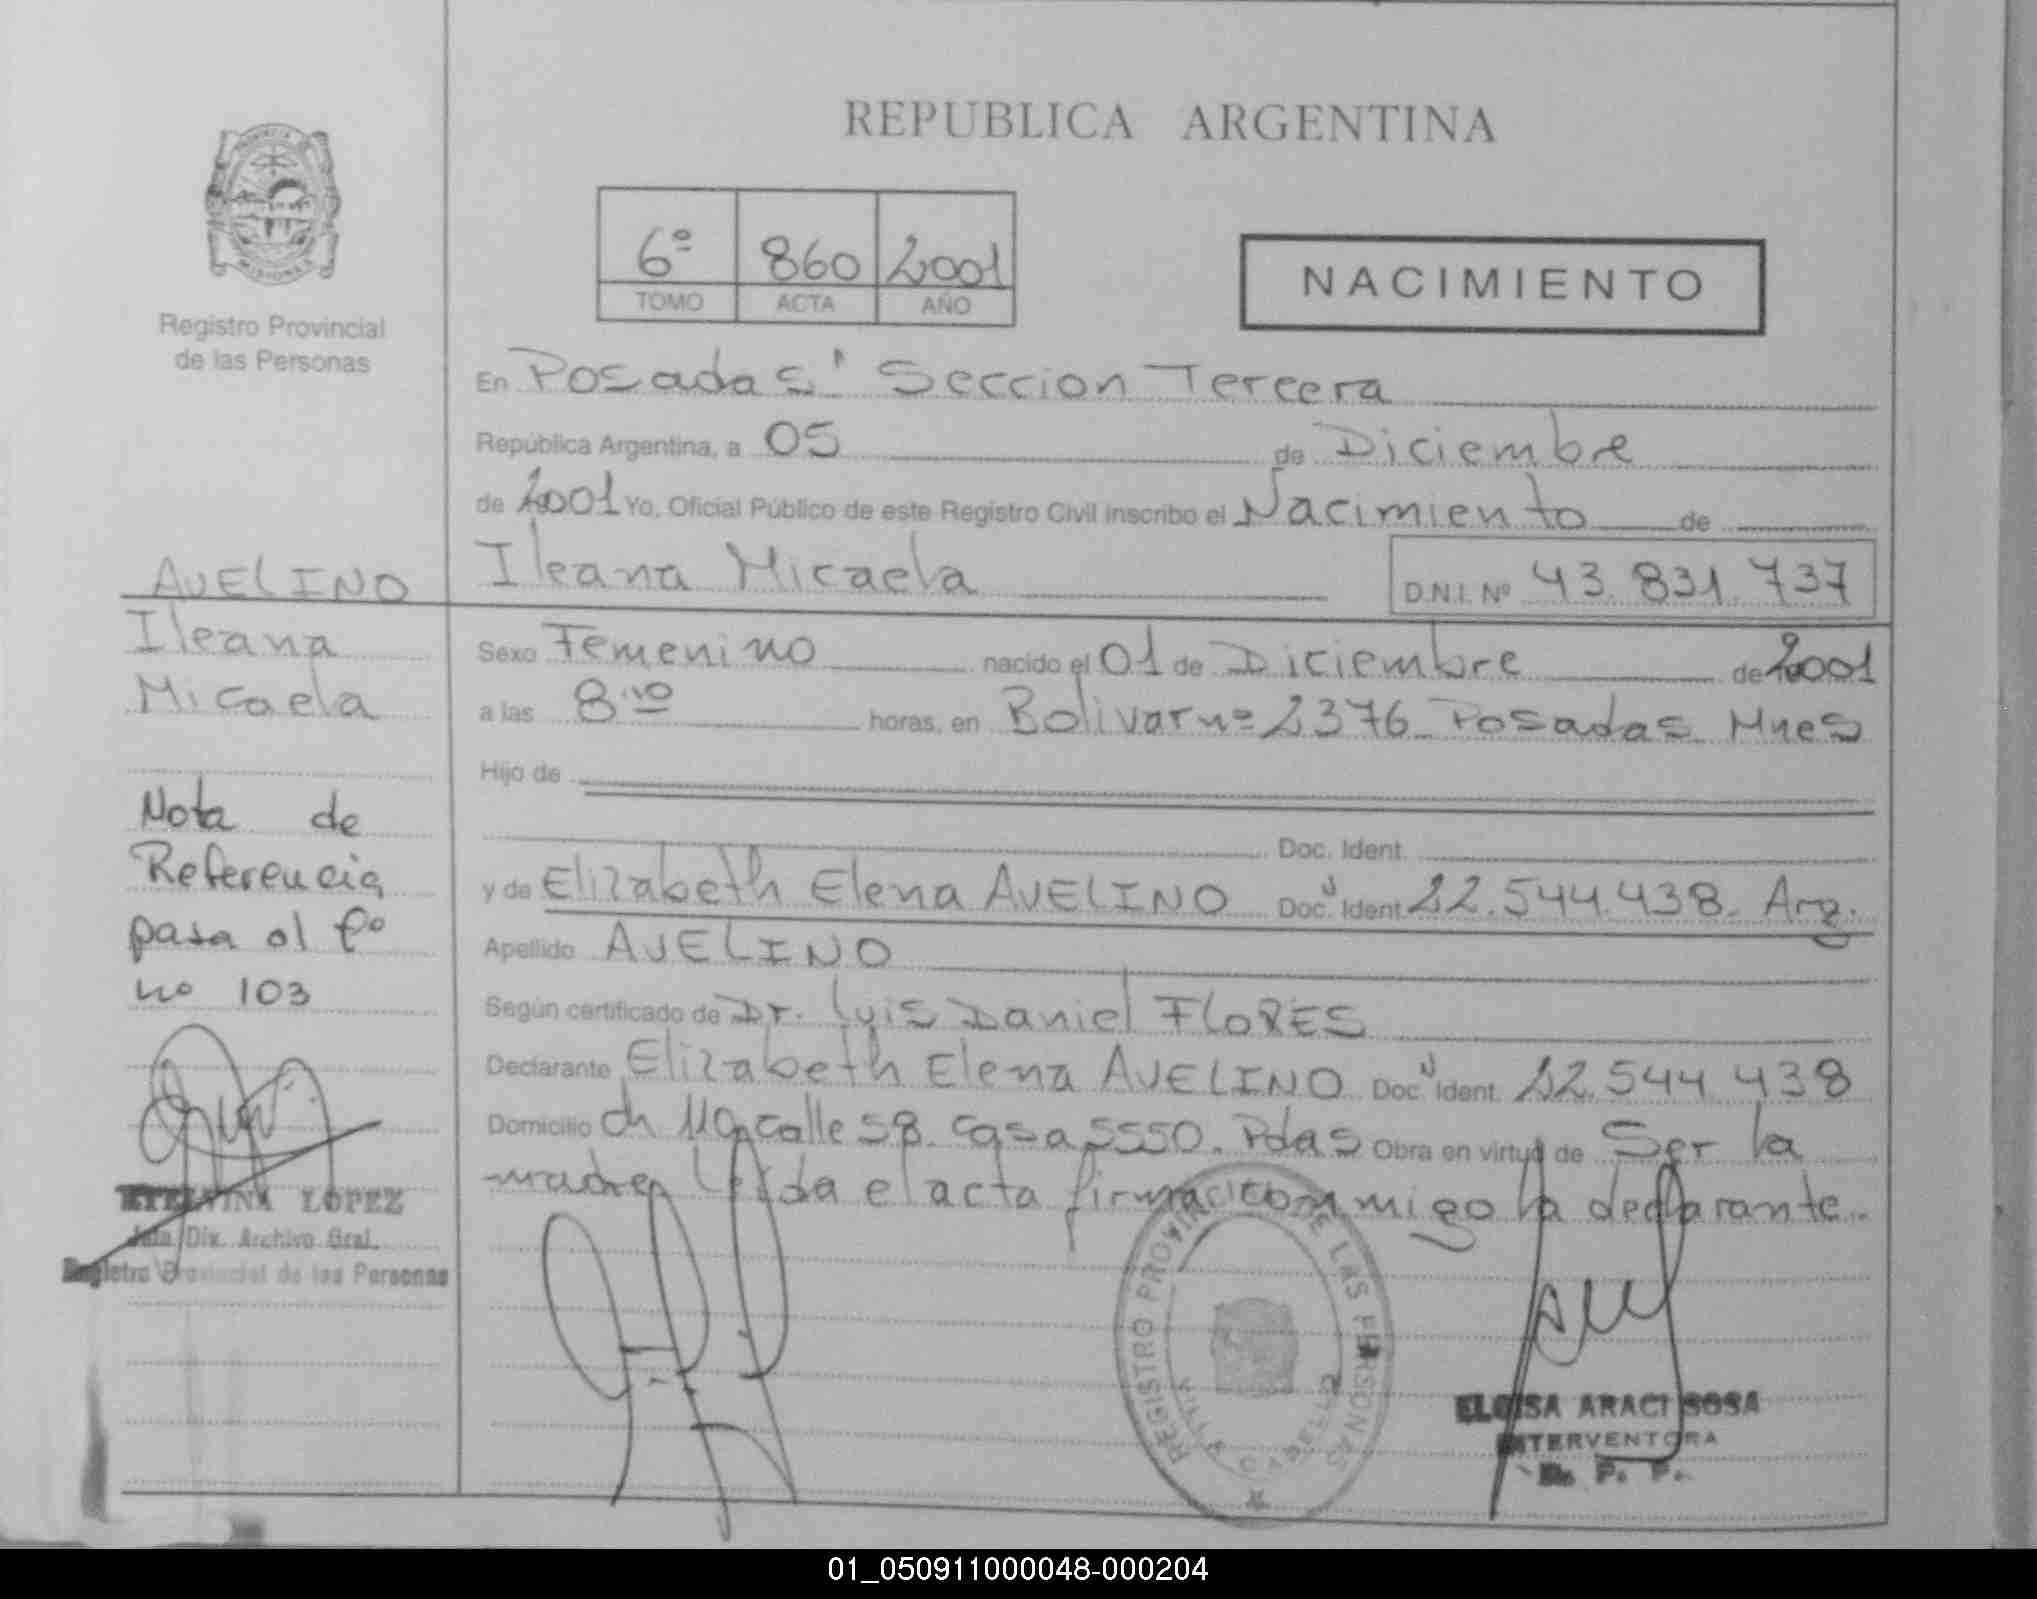 REPUBLICA ARGENTINA
PROVINCIA
MISIONES
Registro Provincial
de las Personas
6º 860 2001
TOMO ACTA AÑO
NACIMIENTO
En Posadas Seccion Tercera
República Argentina, a 05 de Diciembre
de 2001 Yo, Oficial Público de este Registro Civil inscribo el Nacimiento de
Ileana Micaela D.N.I. Nº 43.831.737
Sexo Femenino nacido el 01 de Diciembre de 2001
a las 8:10 horas, en Bolivar nº 2376 Posadas Mnes
Hijo de
Doc. Ident.
y de Elizabeth Elena AVELINO Doc. Ident. 22.544.438. Arg.
Apellido AVELINO
Según certificado de Dr. Luis Daniel FLORES
Declarante Elizabeth Elena AVELINO Doc. Ident. 22.544.438
Domicilio ch 110 calle 58. casa 5550. Pdas Obra en virtud de Ser la
madre Leida el acta firma conmigo la declarante.
AVELINO
Ileana
Micaela
Nota de
Referencia
pasa al fº
nº 103
ETELVINA LOPEZ
Jefa Div. Archivo Gral.
Registro Provincial de las Personas
REGISTRO PROVINCIAL DE LAS PERSONAS
VILLA CABELLO
ELOISA ARACI SOSA
INTERVENTORA
R. P. P.
01_050911000048-000204